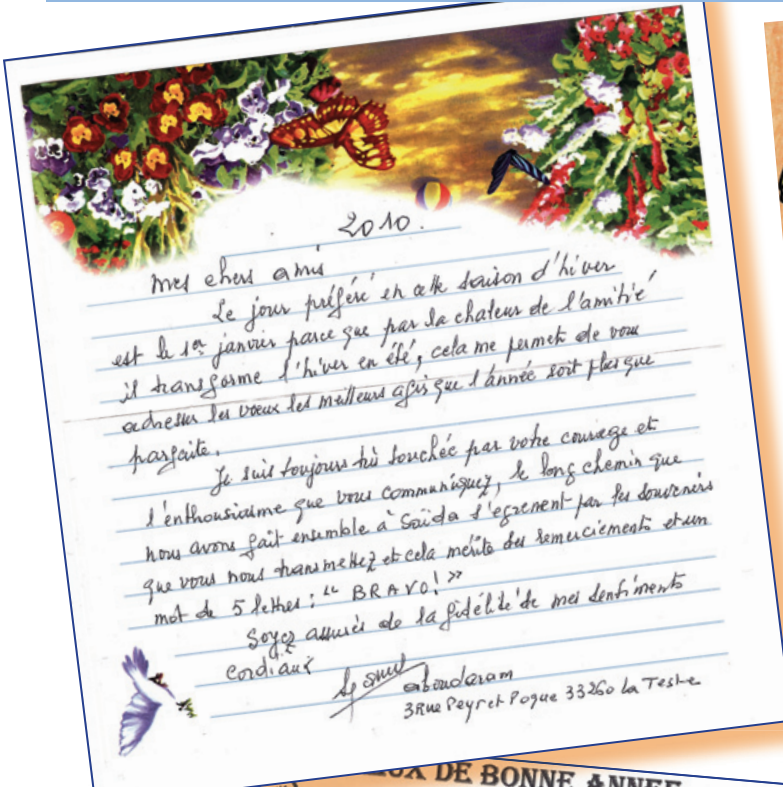 2010.
mes chers amis
Le jour préféré en cette saison d'hiver
est le 1er janvier parce que par la chaleur de l'amitié
il transforme l'hiver en été, cela me permet de vous
adresser les voeux les meilleurs afin que l'année soit plus que
parfaite.
Je suis toujours très touchée par votre courage et
l'enthousiasme que vous communiquez, le long chemin que
nous avons fait ensemble à Saïda s'egrenent par les souvenirs
que vous nous transmettez et cela mérite des remerciements et un
mot de 5 lettres : " BRAVO! »
Soyez assurés de la fidélité de mes sentiments
cordiaux
aboudaram
3 Rue Peyret Pogue 33260 La Teste
DE BONNE ANNEE